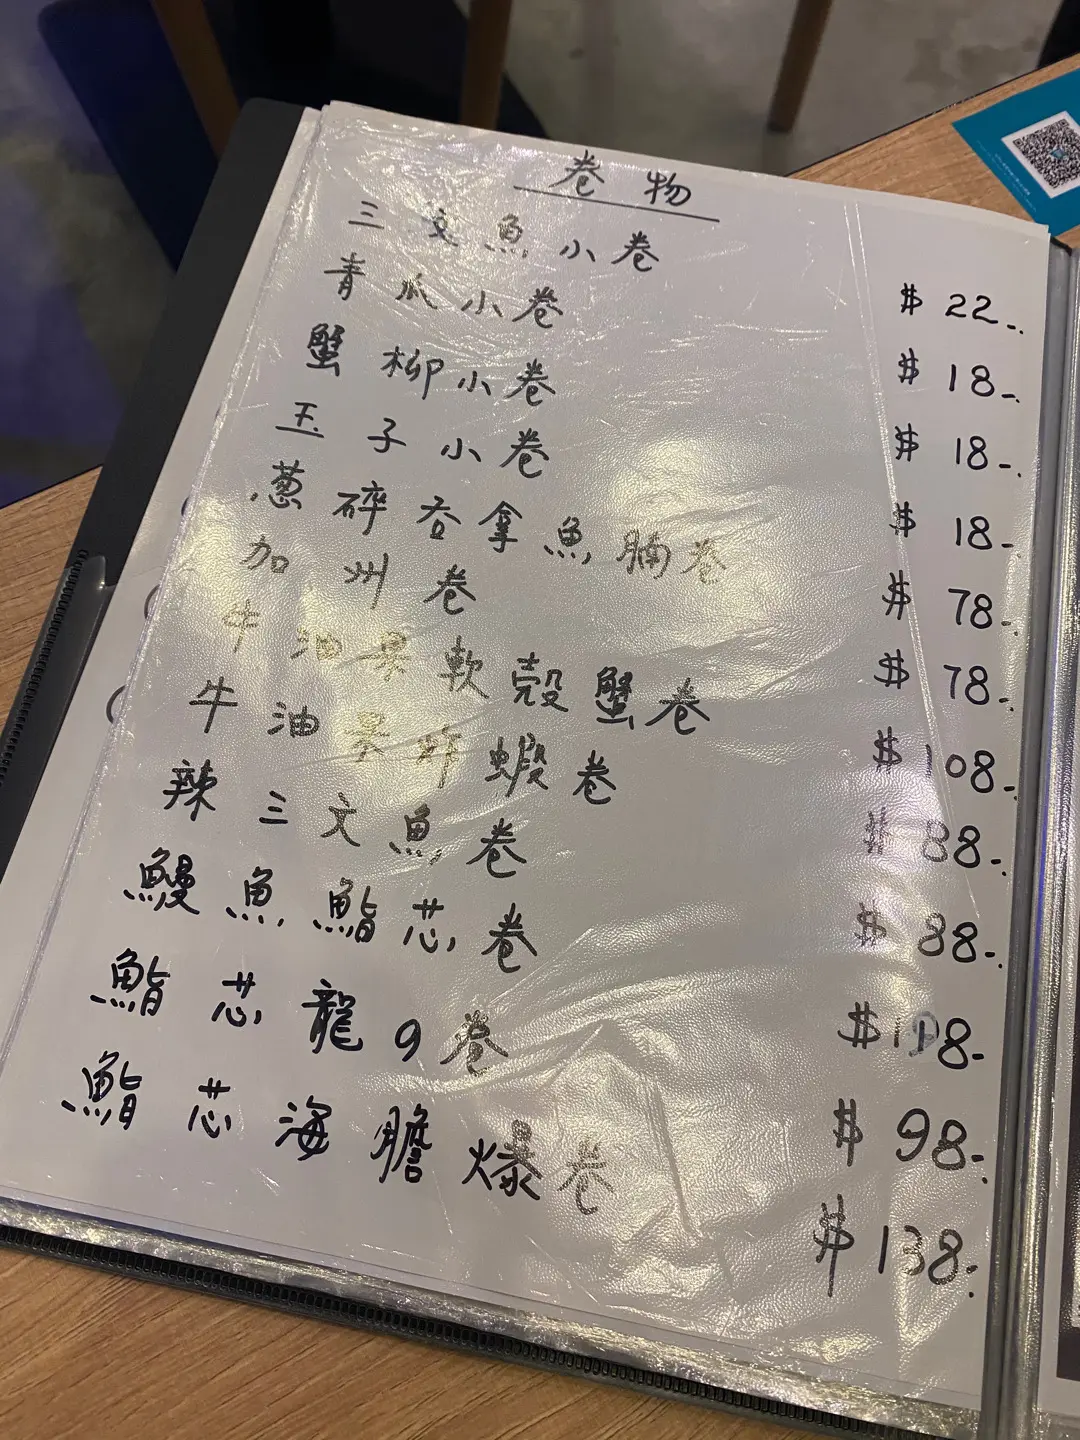 卷物
三文魚小卷 $22-.
青瓜小卷 $18-.
蟹柳小卷 $18-.
玉子小卷 $18-.
葱碎吞拿魚腩卷 $78-.
加州卷 $78-.
牛油果軟殼蟹卷 $108-.
牛油果炸蝦卷 $88-.
辣三文魚卷 $88-.
鰻魚鮨芯卷 $118-
鮨芯龍の卷 $98-.
鮨芯海膽爆卷 $138-.